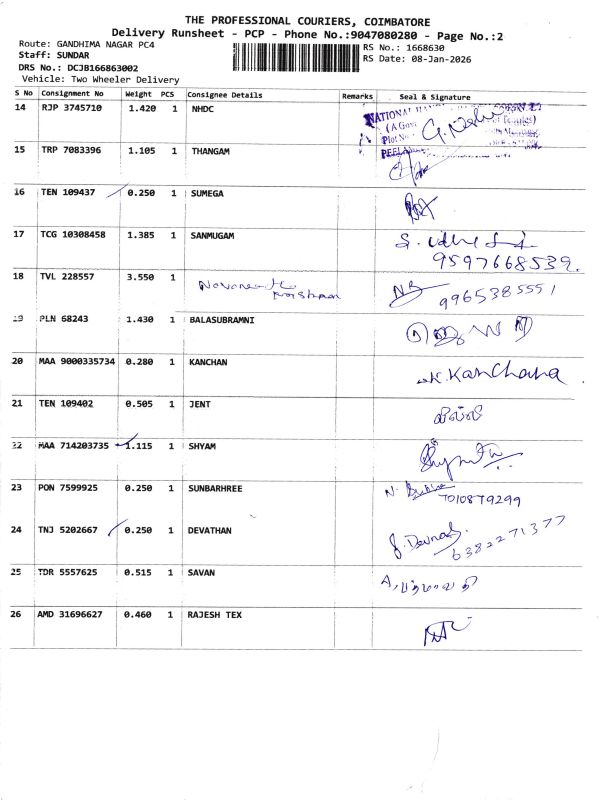 THE PROFESSIONAL COURIERS, COIMBATORE
Delivery Runsheet - PCP - Phone No.:9047080280 - Page No.:2
Route: GANDHIMA NAGAR PC4
RS No.: 1668630
Staff: SUNDAR
RS Date: 08-Jan-2026
DRS No.: DCJB166863002
Vehicle: Two Wheeler Delivery
S No Consignment No Weight PCS Consignee Details Remarks Seal & Signature
14 RJP 3745710 1.420 1 NHDC
NATIONAL
(A Gov
Plot No
PEELA
15 TRP 7083396 1.105 1 THANGAM
16 TEN 109437 0.250 1 SUMEGA
17 TCG 10308458 1.385 1 SANMUGAM
9597668539.
18 TVL 228557 3.550 1
NB 9965385551
19 PLN 68243 1.430 1 BALASUBRAMNI
20 MAA 9000335734 0.280 1 KANCHAN K.Kanchana
21 TEN 109402 0.505 1 JENT
22 MAA 714203735 1.115 1 SHYAM
23 PON 7599925 0.250 1 SUNBARHREE
7010879299
24 TNJ 5202667 0.250 1 DEVATHAN
6382271377
25 TDR 5557625 0.515 1 SAVAN
26 AMD 31696627 0.460 1 RAJESH TEX